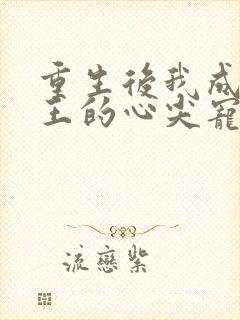 重生後我成
王的心尖寵
流戀紫